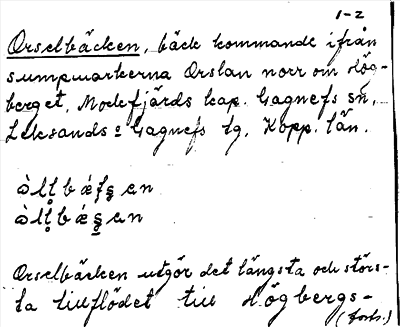 1-2
Orselbäcken, bäck kommande ifrån
sumpmarkerna Orslan norr om Hög-
berget, Mockfjärds kap. Gagnefs sn,
Leksands o Gagnefs tg, Kopp. län.
Orselbäcken utgör det längsta och störs-
ta tillflödet till Högbergs-
(forts.)